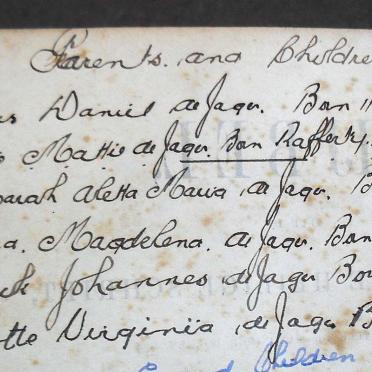 Parents. and Childre
Daniel de Jager. Born 11
Mattie de Jager. Born Rafferty.
Sarah Aletta Maria de Jager. B
a. Magdelena. de Jager. Born
Johannes de Jager Bo
Virginia de Jager B
Children